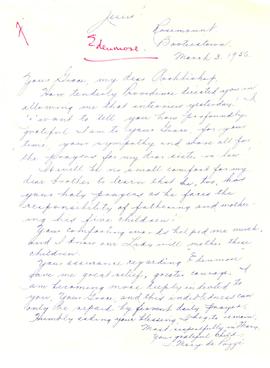 Jesus!
Edenmore.
Rosemount
Booterstown
March 3. 1956.
Your Grace, my dear Archbishop,
How tenderly Providence directed you in
allowing me that interview yesterday! I
want to tell you how profoundly
grateful I am to Your Grace, for your
time, your sympathy and above all for
the prayers for my dear sister in law.
It will be no small comfort for my
dear brother to learn that he, too, has
your holy prayers as he faces the
responsibility of fathering and mother-
ing his five children!
Your comforting words helped me much,
and I know our Lady will mother these
children.
Your assurance regarding Edenmore
gave me great relief, greater courage. I
am becoming more deeply indebted to
you, Your Grace, and this indebtedness can
only be repaid by fervent daily prayer.
Humbly asking your blessing, I beg to remain,
Most respectfully in Mary,
Your grateful child,